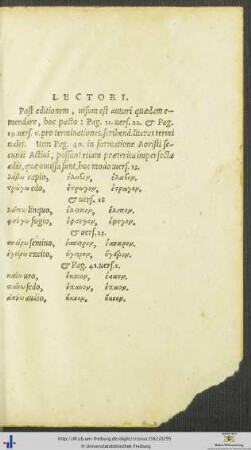 LECTORI.
Post editionem, uisum est autori quædam e-
mendare, hoc pacto: Pag. 11. uers. 22. & Pag.
19. uers. 6. pro terminationes, scribend. literas termi
nales. Item Pag. 40. in formatione Aoristi se-
cundi Actiui, possunt etiam præterita imperfecta
addi, quæ omissa sunt, hoc modo: uers. 13.
λάβω capio, ἔλαβον, ἔλαβον.
τρώγω edo, ἔτρωγον, ἔτραγον.
& uers. 18
λείπω linquo, ἔλειπον, ἔλιπον.
φεύγω fugio, ἔφευγον, ἔφυγον.
& uers. 23.
σπείρω semino, ἔσπειρον, ἔσπαρον.
ἐγείρω excito, ἤγειρον, ἤγαρον.
& Pag. 41. uers. 1.
καίω uro, ἔκαιον, ἔκαον.
παύω sedo, ἔπαυον, ἔπαον.
ἀκούω audio, ἤκουον, ἤκοον.
© Universitätsbibliothek Freiburg
Baden-Württemberg